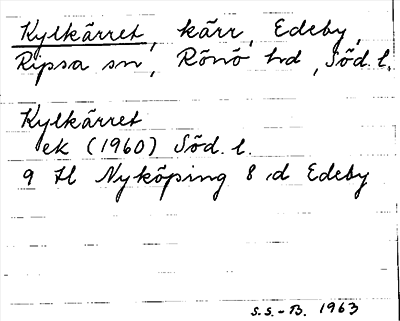 Kylkärret, kärr, Edeby,
Ripsa sn, Rönö hd, Söd. l.
Kylkärret
ek (1960) Söd. l.
9 H Nyköping 8 d Edeby
S.S.-B. 1963